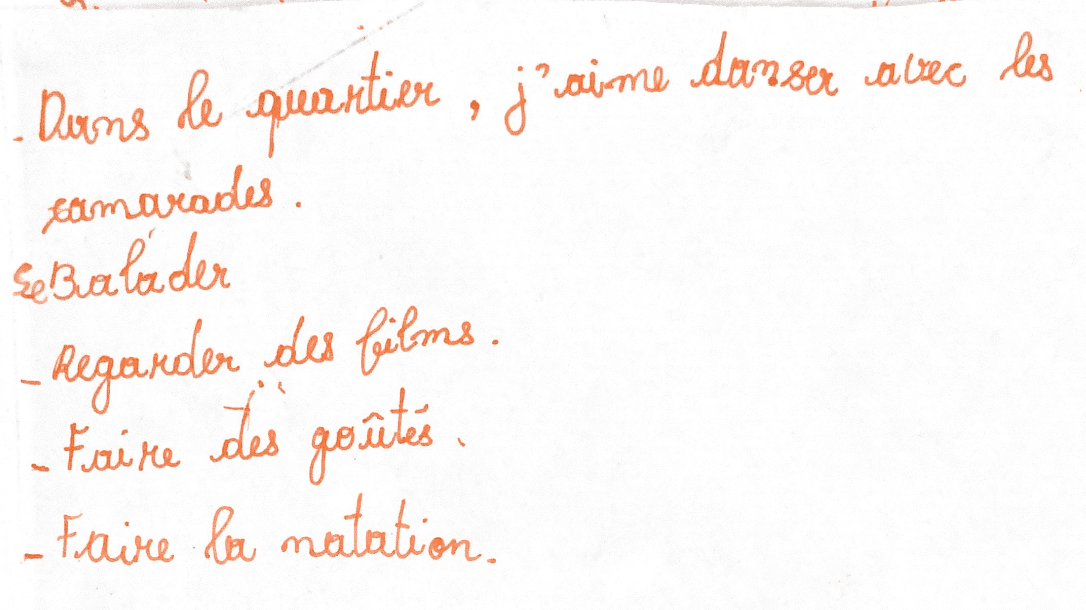 - Dans le quartier, j'aime danser avec les
camarades.
Se Balader
- Regarder des films.
- Faire des goûtés.
- Faire la natation.